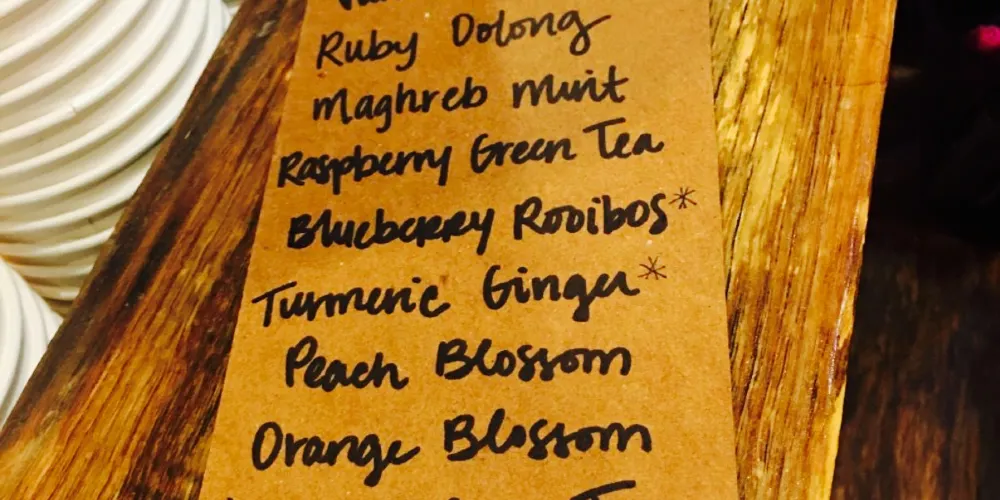 Ruby Oolong
Maghreb Mint
Raspberry Green Tea
Blueberry Rooibos*
Turmeric Ginger*
Peach Blossom
Orange Blossom